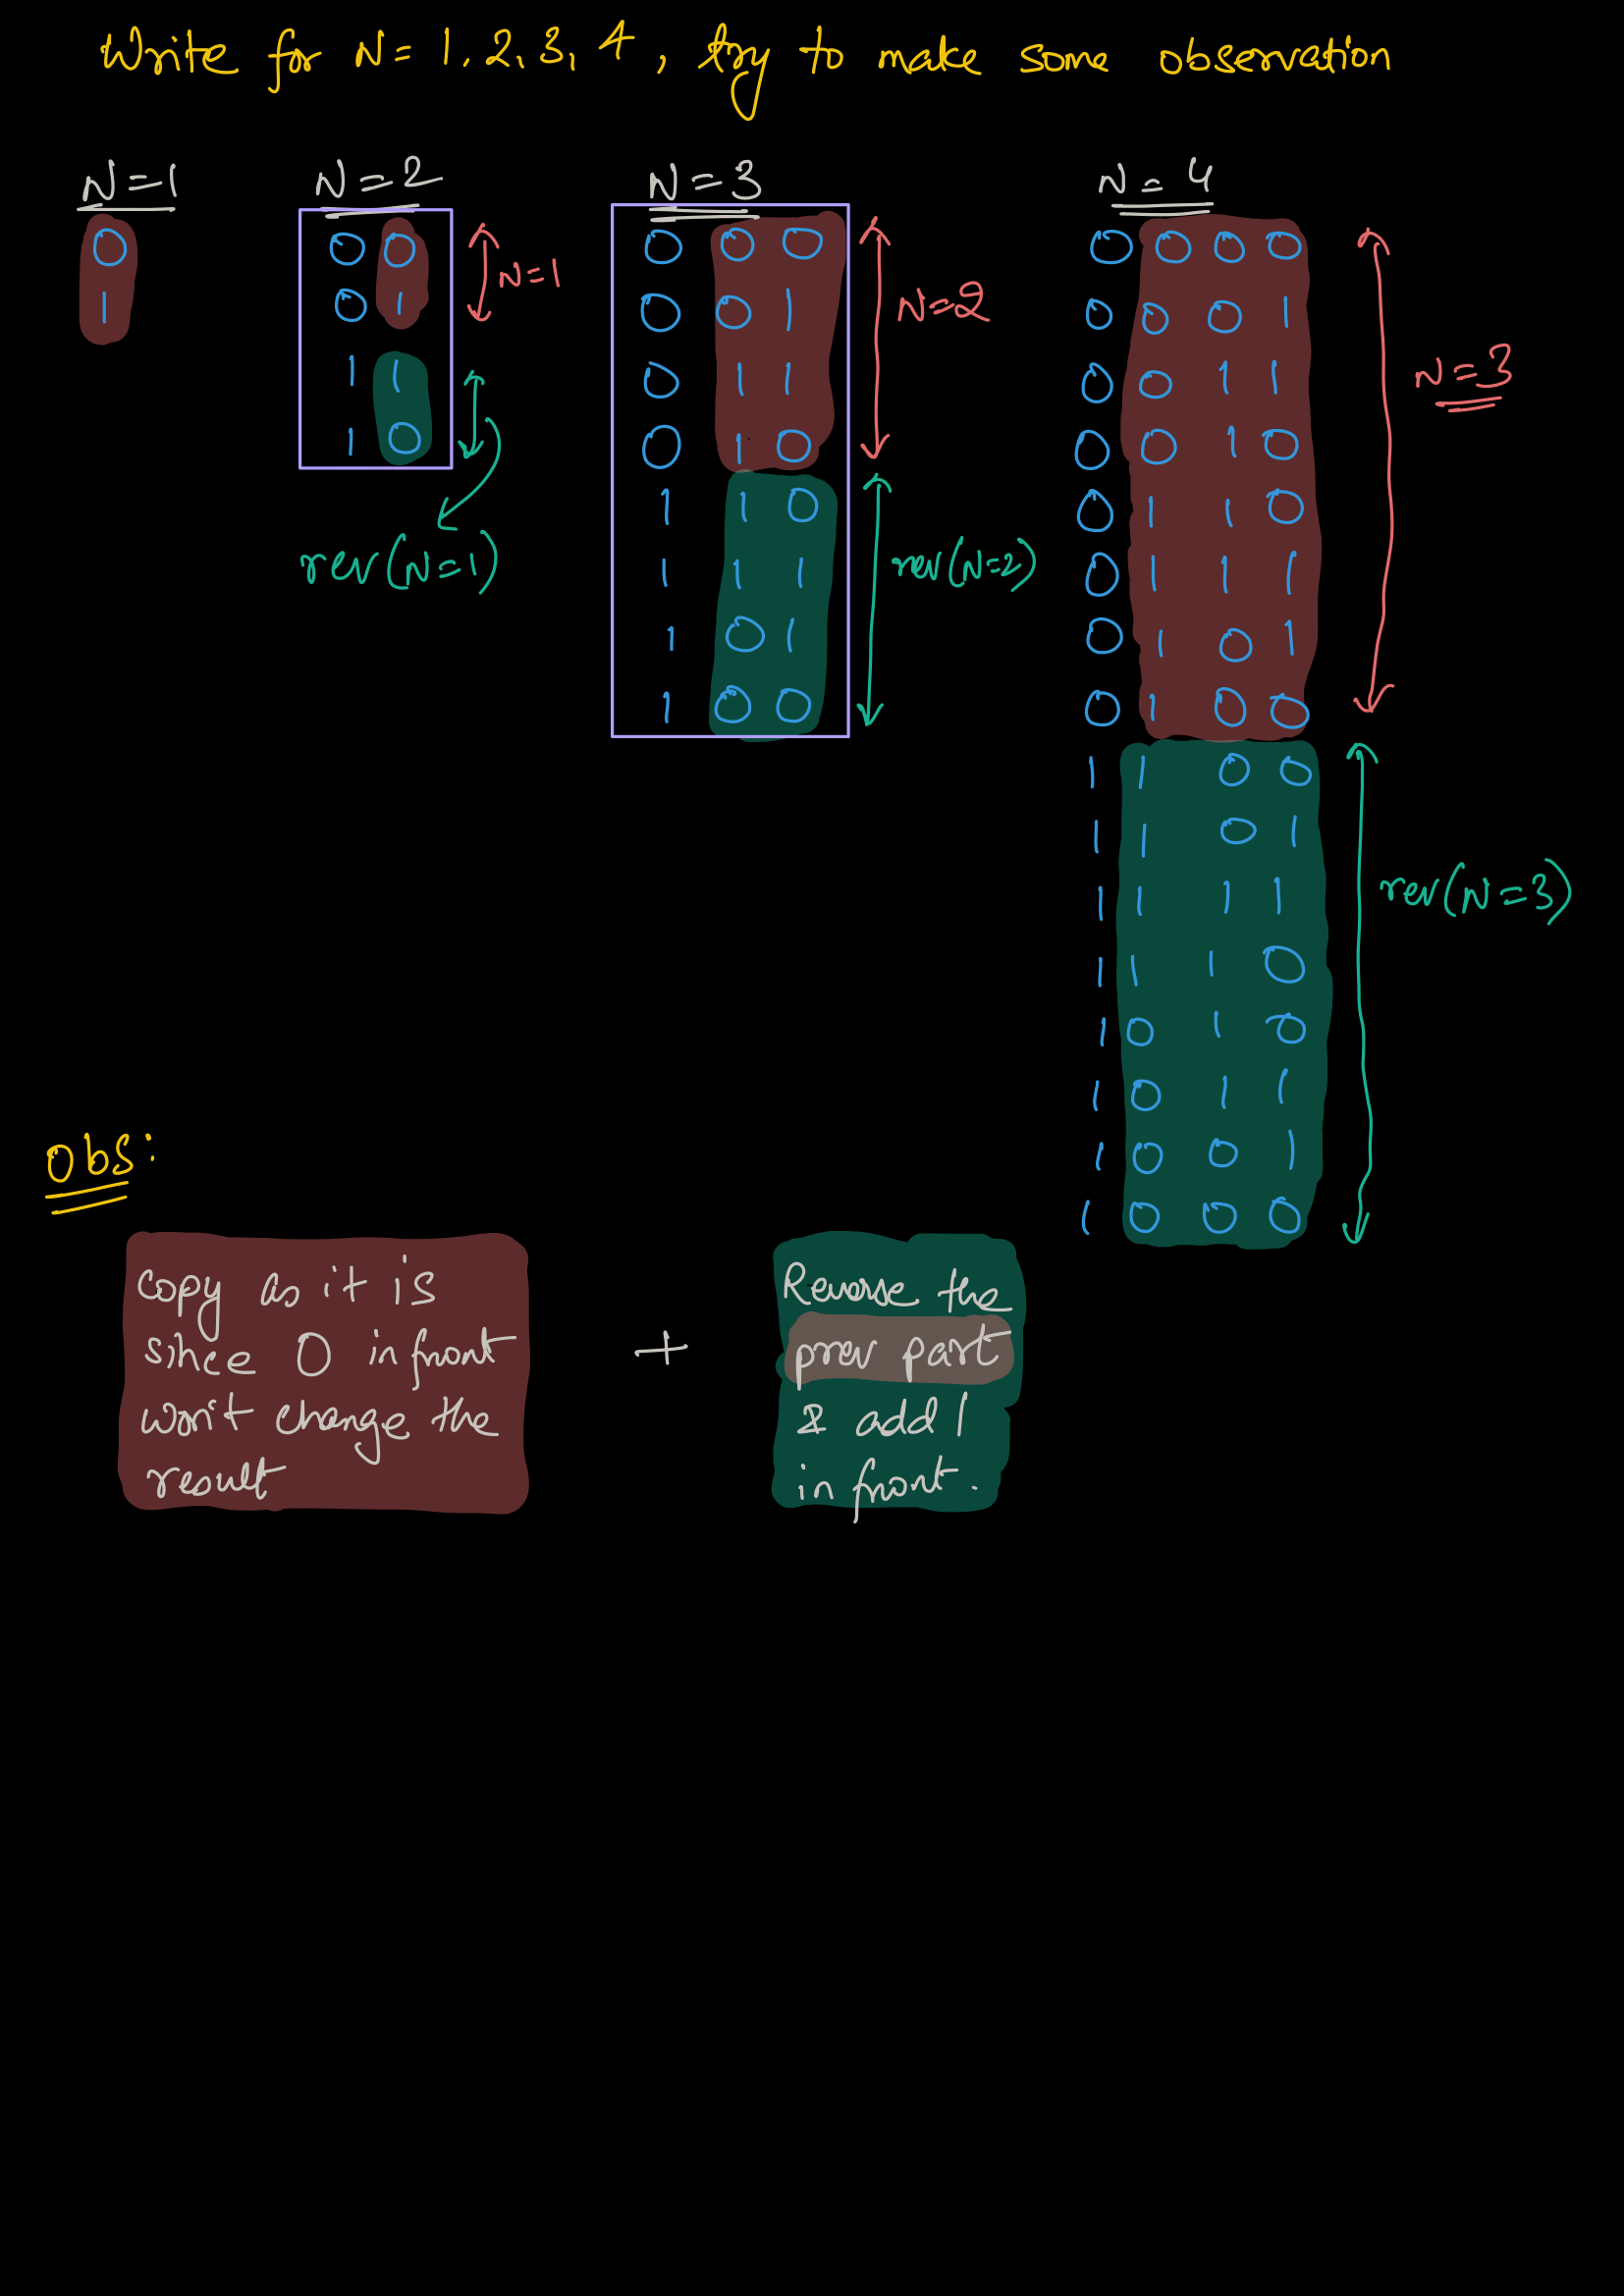 Write for N = 1, 2, 3, 4, try to make some observation
N=1
0
1
N=2
0 0
0 1
1 1
1 0
N=1
rev(N=1)
N=3
0 0 0
0 0 1
0 1 1
0 1 0
1 1 0
1 1 1
1 0 1
1 0 0
N=2
rev(N=2)
N=4
0 0 0 0
0 0 0 1
0 0 1 1
0 0 1 0
0 1 1 0
0 1 1 1
0 1 0 1
0 1 0 0
1 1 0 0
1 1 0 1
1 1 1 1
1 1 1 0
1 0 1 0
1 0 1 1
1 0 0 1
1 0 0 0
N=3
rev(N=3)
Obs:
Copy as it is
since 0 in front
won't change the
result
+
Reverse the
prev part
& add 1
in front.